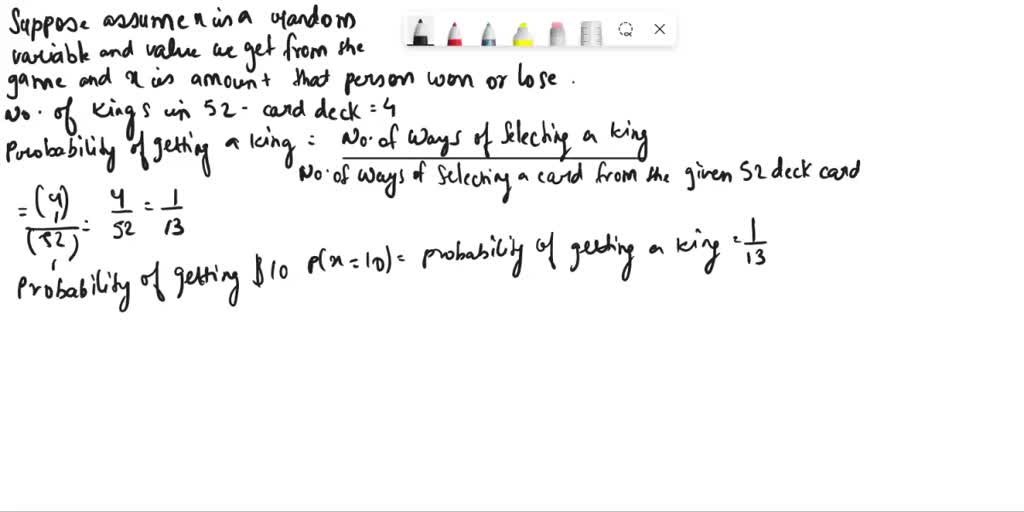 Suppose assume x is a random
variable and value we get from the
game and x is amount that person won or lose .
No. of Kings in 52 - card deck = 4
Probability of getting a king = No. of ways of selecting a king
No. of ways of selecting a card from the given 52 deck card
= (4 1) / (52 1) = 4/52 = 1/13
Probability of getting $10 P(x=10) = probability of getting a king = 1/13